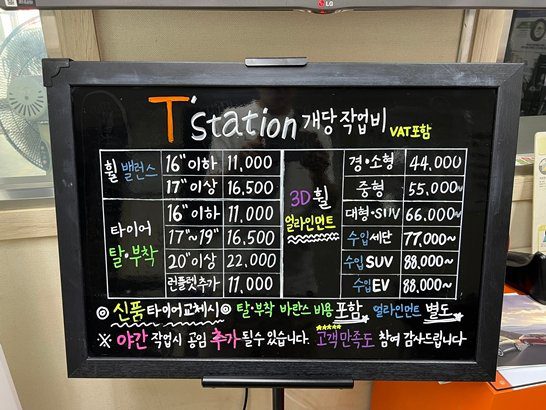 LG
T'station 개당 작업비 VAT포함
휠 밸런스 16"이하 11,000
17"이상 16,500
타이어 탈·부착 16"이하 11,000
17"~19" 16,500
20"이상 22,000
런플렛추가 11,000
3D 휠 얼라인먼트 경·소형 44,000
중형 55,000~
대형·SUV 66,000~
수입세단 77,000~
수입SUV 88,000~
수입EV 88,000~
◎ 신품 타이어교체시 ◎ 탈·부착 바란스 비용 포함 얼라인먼트 별도
※ 야간 작업시 공임 추가 될수 있습니다. 고객만족도 참여 감사드립니다